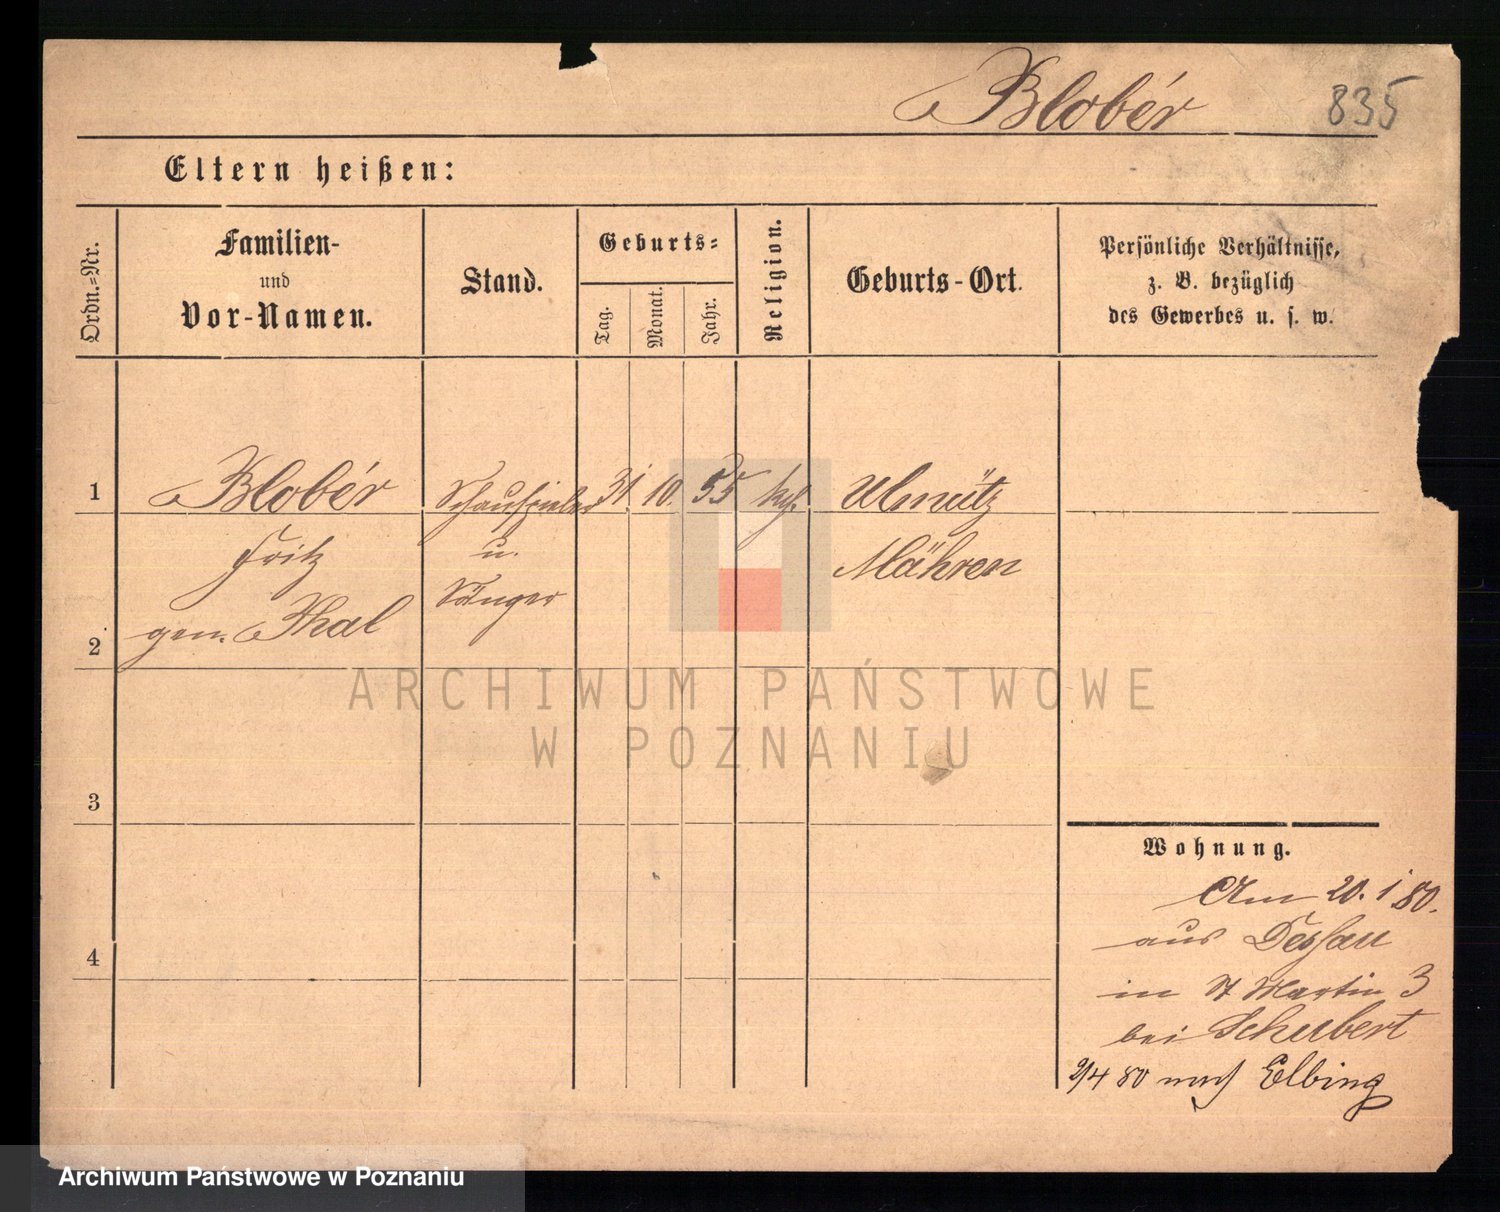 Blobér 835
Eltern heißen:
Ordn.-Nr.
Familien-
und
Vor-Namen.
Stand.
Geburts-
Tag.
Monat.
Jahr.
Religion.
Geburts-Ort.
Persönliche Verhältnisse,
z. B. bezüglich
des Gewerbes u. s. w.
1 Blobér Schauspieler 31. 10. 55 kth. Olmütz
Fritz u. Mähren
gen. Thal Sänger
2
ARCHIWUM PAŃSTWOWE
W POZNANIU
3
4
Wohnung.
Am 20. 1 80.
aus Dessau
in St Martin 3
bei Schubert
9/4 80 nach Elbing
Archiwum Państwowe w Poznaniu